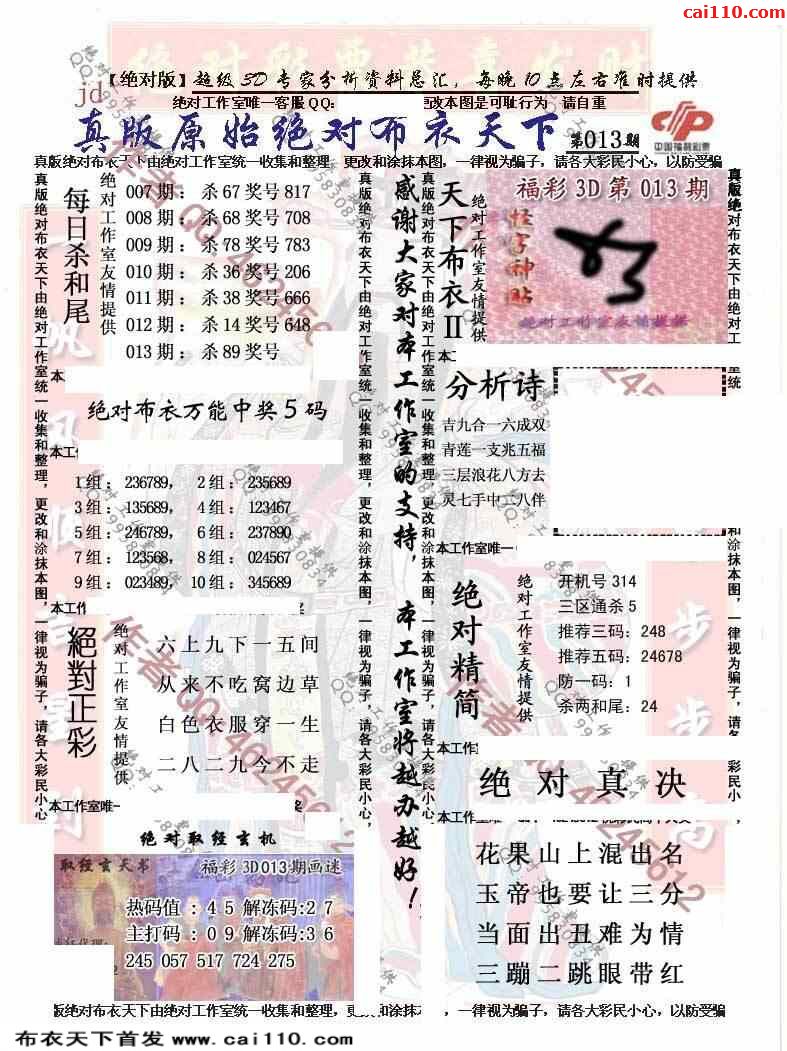 cai110.com
【绝对版】超级3D专家分析资料总汇，每晚10点左右准时提供
jd
绝对工作室唯一客服QQ:
更改本图是可耻行为 请自重
真版原始绝对布衣天下
第013期
中国福利彩票
真版绝对布衣天下由绝对工作室统一收集和整理，更改和涂抹本图，一律视为骗子，请各大彩民小心，以防受骗
每日杀和尾
绝对工作室友情提供
007期：杀67奖号817
008期：杀68奖号708
009期：杀78奖号783
010期：杀36奖号206
011期：杀38奖号666
012期：杀14奖号648
013期：杀89奖号
绝对布衣万能中奖5码
1组：236789， 2组：235689
3组：135689， 4组：123467
5组：246789， 6组：237890
7组：123568， 8组：024567
9组：023489， 10组：345689
絕對正彩
绝对工作室友情提供
六上九下一五间
从来不吃窝边草
白色衣服穿一生
二八二九今不走
绝对取经玄机
取经玄天书
福彩3D013期画迷
热码值：45解冻码:27
主打码：09解冻码:36
245 057 517 724 275
真版绝对布衣天下由绝对工作室统一收集和整理，更改和涂抹本图，一律视为骗子，请各大彩民小心，
感谢大家对本工作室的支持，本工作室将越办越好！
真版绝对布衣天下由绝对工作室统一收集和整理，更改和涂抹本图，一律视为骗子，请各大彩民小心，
天下布衣II
绝对工作室友情提供
福彩3D第013期
怪字神贴
绝对工作室友情提供
分析诗
吉九合一六成双
青莲一支兆五福
三层浪花八方去
灵七手中二八伴
本工作室唯一
绝对精简
绝对工作室友情提供
开机号314
三区通杀5
推荐三码：248
推荐五码：24678
防一码：1
杀两和尾：24
绝对真决
花果山上混出名
玉帝也要让三分
当面出丑难为情
三蹦二跳眼带红
版绝对布衣天下由绝对工作室统一收集和整理，更
和涂抹本
，一律视为骗子，请各大彩民小心，以防受骗
布衣天下首发 www.cai110.com